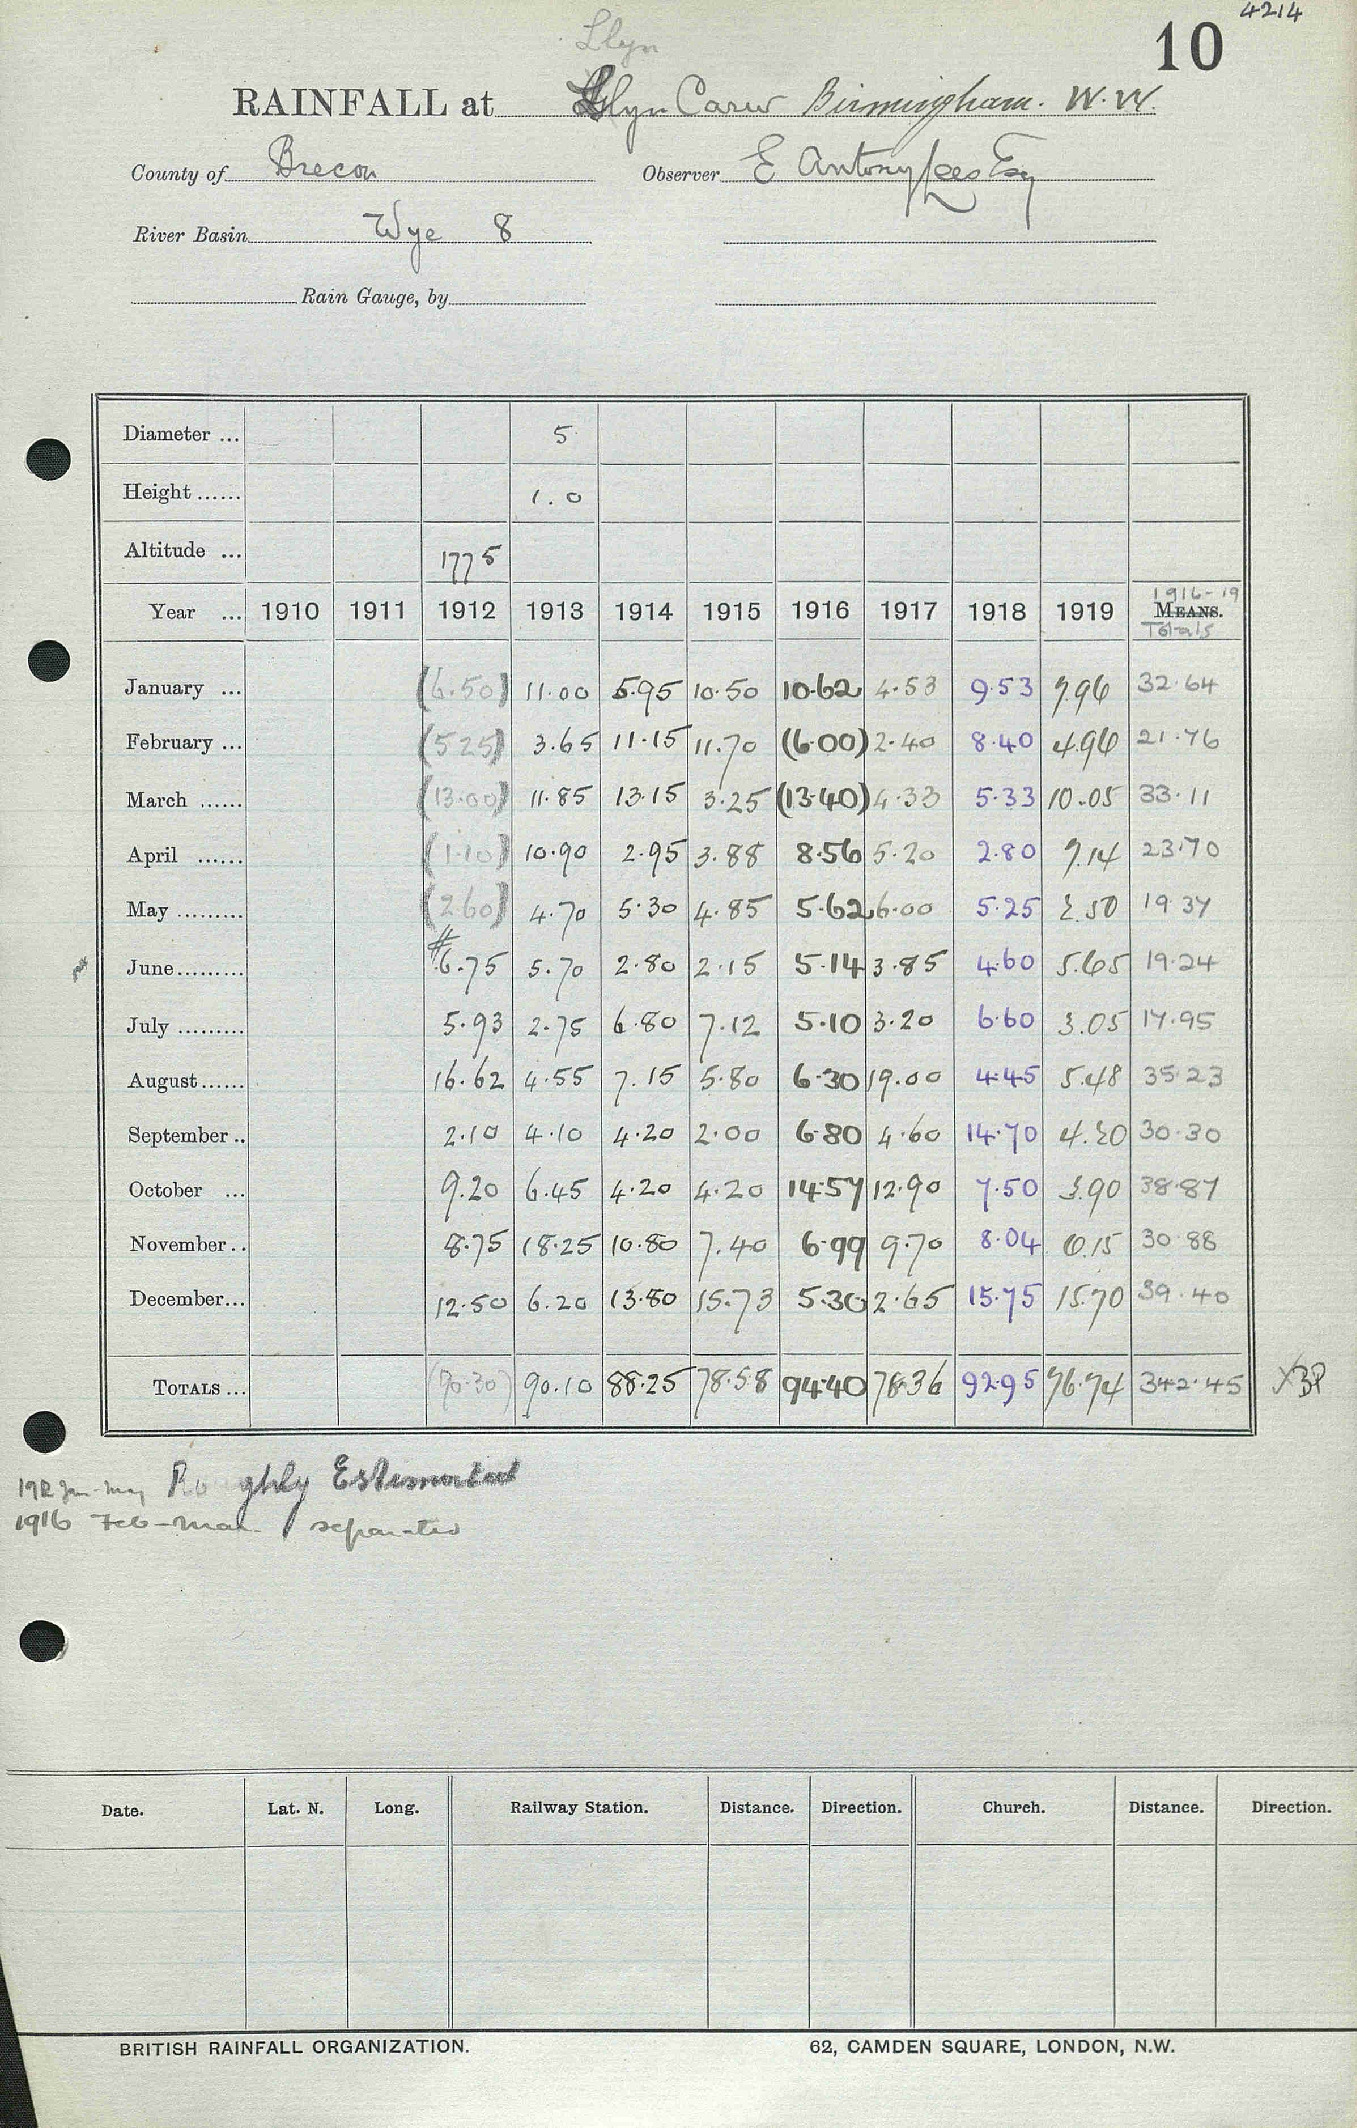 4214
10
Llyn
RAINFALL at Llyn Carw Birmingham. W.W.
County of Brecon Observer E Antony Lees Esq
River Basin Wye 8
Rain Gauge, by
Diameter ... 5
Height ...... 1.0
Altitude ... 1775
1916-19
Year ... 1910 1911 1912 1913 1914 1915 1916 1917 1918 1919 MEANS.
Totals
January ... (6.50) 11.00 5.95 10.50 10.62 4.53 9.53 7.96 32.64
February ... (5.25) 3.65 11.15 11.70 (6.00) 2.40 8.40 4.96 21.76
March ...... (13.00) 11.85 13.15 3.25 (13.40) 4.33 5.33 10.05 33.11
April ...... (1.10) 10.90 2.95 3.88 8.56 5.20 2.80 7.14 23.70
May ......... (2.60) 4.70 5.30 4.85 5.62 6.00 5.25 2.50 19.37
June......... #6.75 5.70 2.80 2.15 5.14 3.85 4.60 5.65 19.24
July ......... 5.93 2.75 6.80 7.12 5.10 3.20 6.60 3.05 17.95
August...... 16.62 4.55 7.15 5.80 6.30 19.00 4.45 5.48 35.23
September .. 2.10 4.10 4.20 2.00 6.80 4.60 14.70 4.20 30.30
October ... 9.20 6.45 4.20 4.20 14.57 12.90 7.50 3.90 38.87
November .. 8.75 18.25 10.80 7.40 6.99 9.70 8.04 6.15 30.88
December... 12.50 6.20 13.80 15.73 5.30 2.65 15.75 15.70 39.40
TOTALS ... (90.30) 90.10 88.25 78.58 94.40 78.36 92.95 76.74 342.45 XBP
1912 Jan-May Roughly Estimated
1916 Feb-Mar. separated
Date. Lat. N. Long. Railway Station. Distance. Direction. Church. Distance. Direction.
BRITISH RAINFALL ORGANIZATION. 62, CAMDEN SQUARE, LONDON, N.W.